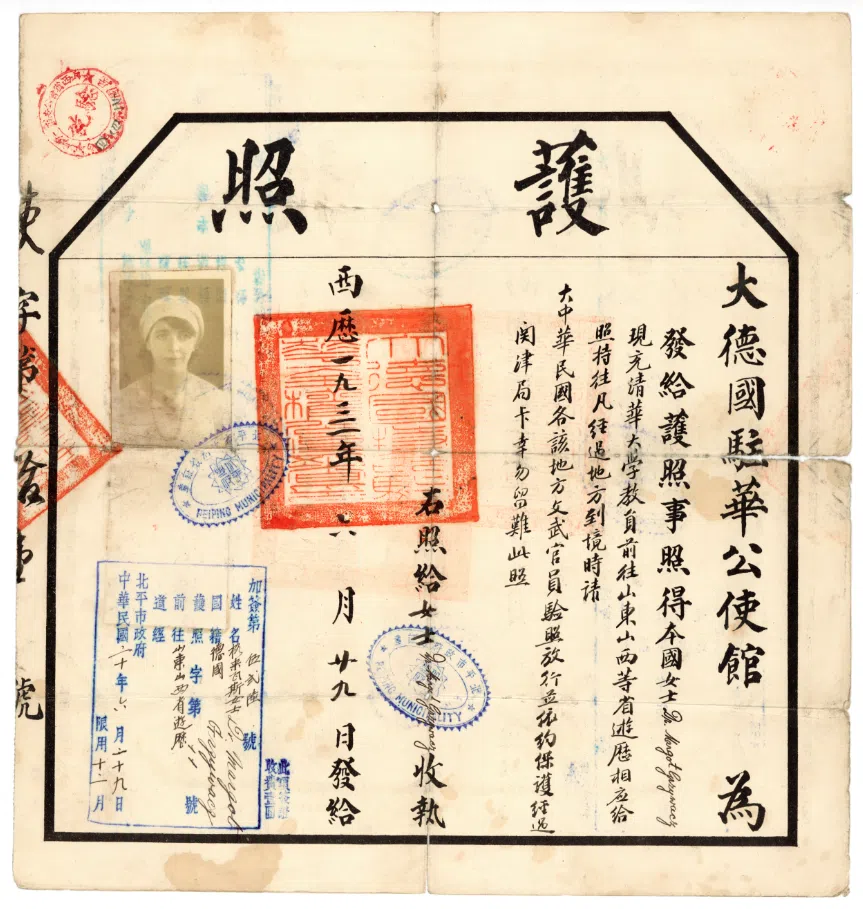 護照
大德國駐華公使館 為
發給護照事照得本國女士 Dr. Margot Grzywacz
現充清華大學教員前往山東山西等省遊歷相應給
照持往凡經過地方到境時請
大中華民國各該地方文武官員驗照放行並依約保護經過
関津局卡幸勿留難此照
右照給女士 Dr. Margot Grzywacz 收執
西歷一九三一年 六 月 廿九 日發給
PEIPING MUNICIPALITY
PEIPING MUNICIPALITY
加簽第 伍弍陸 號
姓名 女士 Dr. Margot Grzywacz
國籍 德國
護照 字第 號
前往 山東山西省遊歷
道經
北平市政府
中華民國二十年六月二十九日
限用十二月
使字第 拾 號
護照